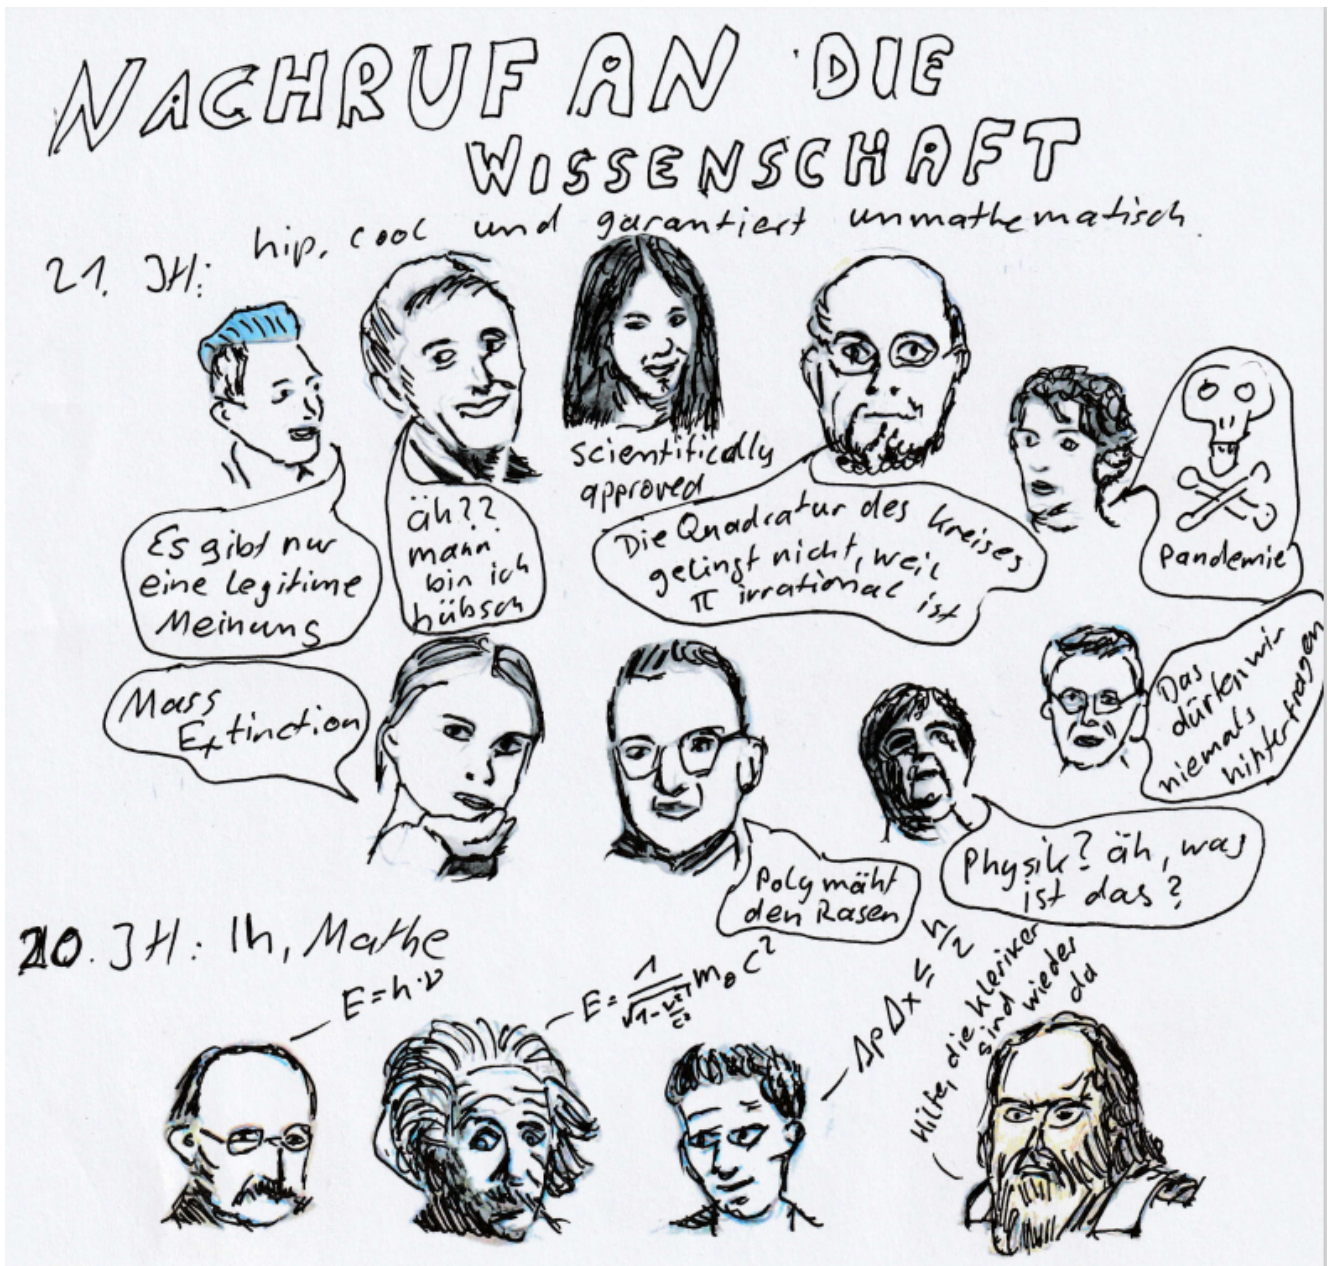 NACHRUF AN DIE
WISSENSCHAFT
21. JH: hip, cool und garantiert unmathematisch.
Es gibt nur
eine legitime
Meinung
äh??
mann
bin ich
hübsch
scientifically
approved
Die Quadratur des Kreises
gelingt nicht, weil
π irrational ist
Pandemie
Mass
Extinction
Poly mäht
den Rasen
Physik? äh, was
ist das?
Das
dürfen wir
niemals
hinterfragen
20. JH: Ih, Mathe
E=h·ν
E=1/√(1-v²/c²) m₀c²
Δp Δx ≤ ħ/2
Hilfe, die Kleriker
sind wieder
da